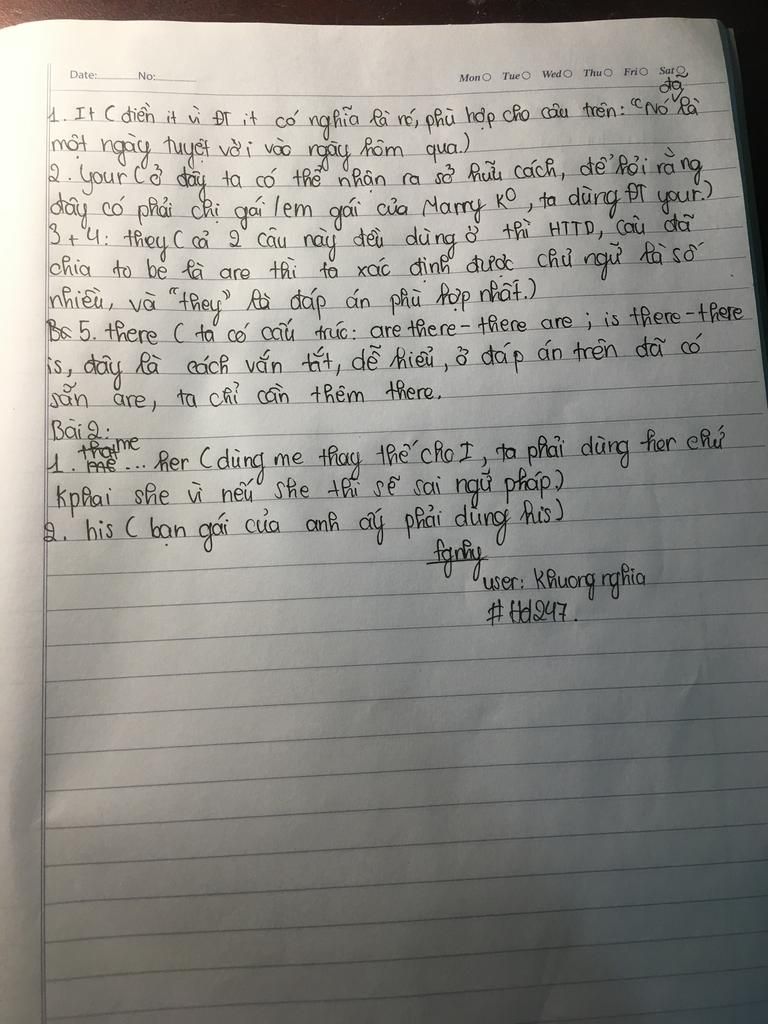 Date: No: Mon Tue Wed Thu Fri Sat
đã
1. It (điền it vì ĐT it có nghĩa là nó, phù hợp cho câu trên: "Nó là
một ngày tuyệt vời vào ngày hôm qua.)
2. your (ở đây ta có thể nhận ra sở hữu cách, để hỏi rằng
đây có phải chị gái/em gái của Marry ko, ta dùng ĐT your.)
3+4: they (cả 2 câu này đều dùng ở thì HTTD, câu đã
chia to be là are thì ta xác định được chủ ngữ là số
nhiều, và "they" là đáp án phù hợp nhất.)
5. there (ta có cấu trúc: are there-there are; is there-there
is, đây là cách vắn tắt, dễ hiểu, ở đáp án trên đã có
sẵn are, ta chỉ cần thêm there.
Bài 2:
me
1. ... her (dùng me thay thế cho I, ta phải dùng her chứ
kphai she vì nếu she thì sẽ sai ngữ pháp.)
2. his (bạn gái của anh ấy phải dùng his)
user: Khuongnghia
#Hd247.